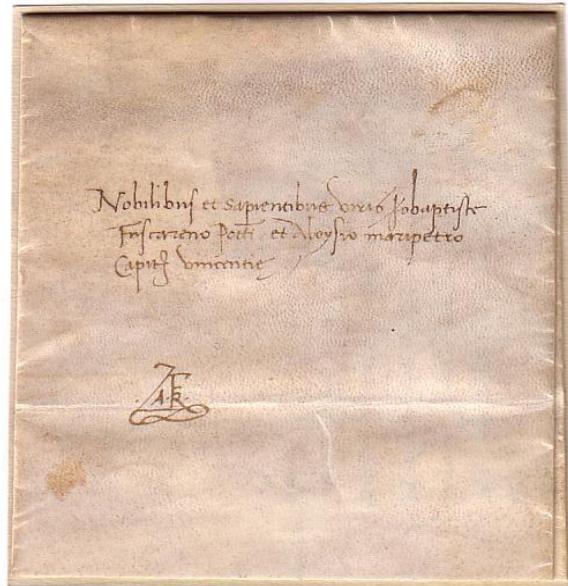 Nobilibus et sapientibus viris Jobaptiste
Fuscareno Potti et Aloysio maripetro
Capith vincentie